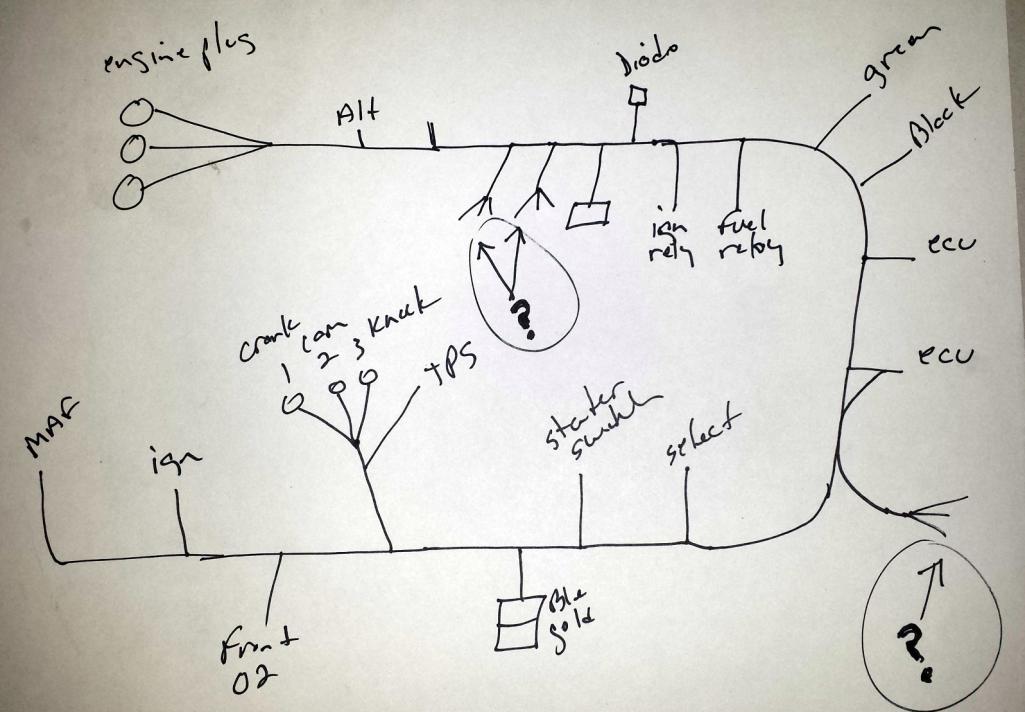 engine plug
Alt
Diode
green
Black
ecu
ign
rely
fuel
reloy
?
crank
cam
knock
1
2
3
TPS
ecu
MAF
ign
starter
switch
select
Front
O2
Blue
gold
?